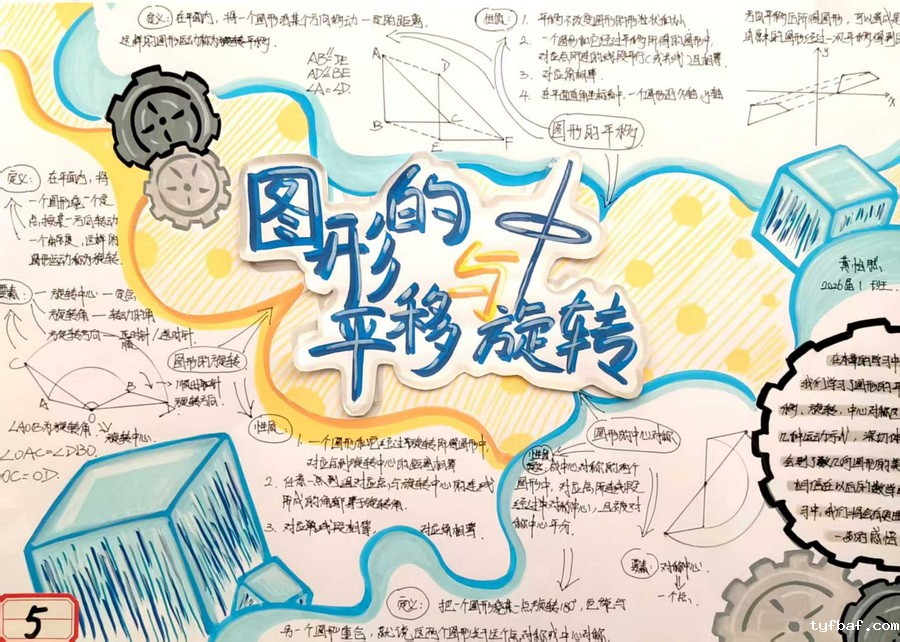 定义：在平面内，将一个图形沿某个方向移动一定的距离.
这样的图形运动称为图形平移.
AB∥DE
AD∥BE
∠A=∠D
A
D
B
C
E
F
性质：1. 平移不改变图形的形状和大小
2. 一个图形和它经过平移所得的图形中，
对应点所连的线段平行(或共线)且相等.
3. 对应角相等.
4. 在平面直角坐标中，一个图形沿
方向平移后所得图形，可以看成是
y
x
图形的平移
图形的平移与旋转
中
定义：在平面内，将
一个图形绕一个定
点按某一方向转动
一个角度，这样的
图形运动称为旋转.
要素：一 旋转中心 一 定点
旋转角 — 转动的角
旋转方向 — 顺时针/逆时针
图形的旋转
C
B
A
O
旋转方向
∠AOB为旋转角
旋转中心.
∠OAC=∠DBO.
OC=OD.
黄怡然
2026届1班
在本章的学习中
我们学习了图形的平
移、旋转、中心对称
几种运动方式，深切体
会到了数几何图形的美
相信在以后的数学
习中，我们
的感悟
性质：1. 一个图形和它经过旋转所得图形中，
对应点到旋转中心的距离相等
2. 任意一点到通对应点与旋转中心的连线
所成的角都等于旋转角.
3. 对应线段相等， 对应角相等
图形的中心对称
性质：成中心对称的两个
图形中，对应点所连线段
经过对称中心，且被对
称中心平分
要素：对称中心.
一个点.
定义：把一个图形绕某一点旋转180°，它能与
另一个图形重合，就说这两个图形关于这个点对称或中心对称.
5
tyfbaf.com